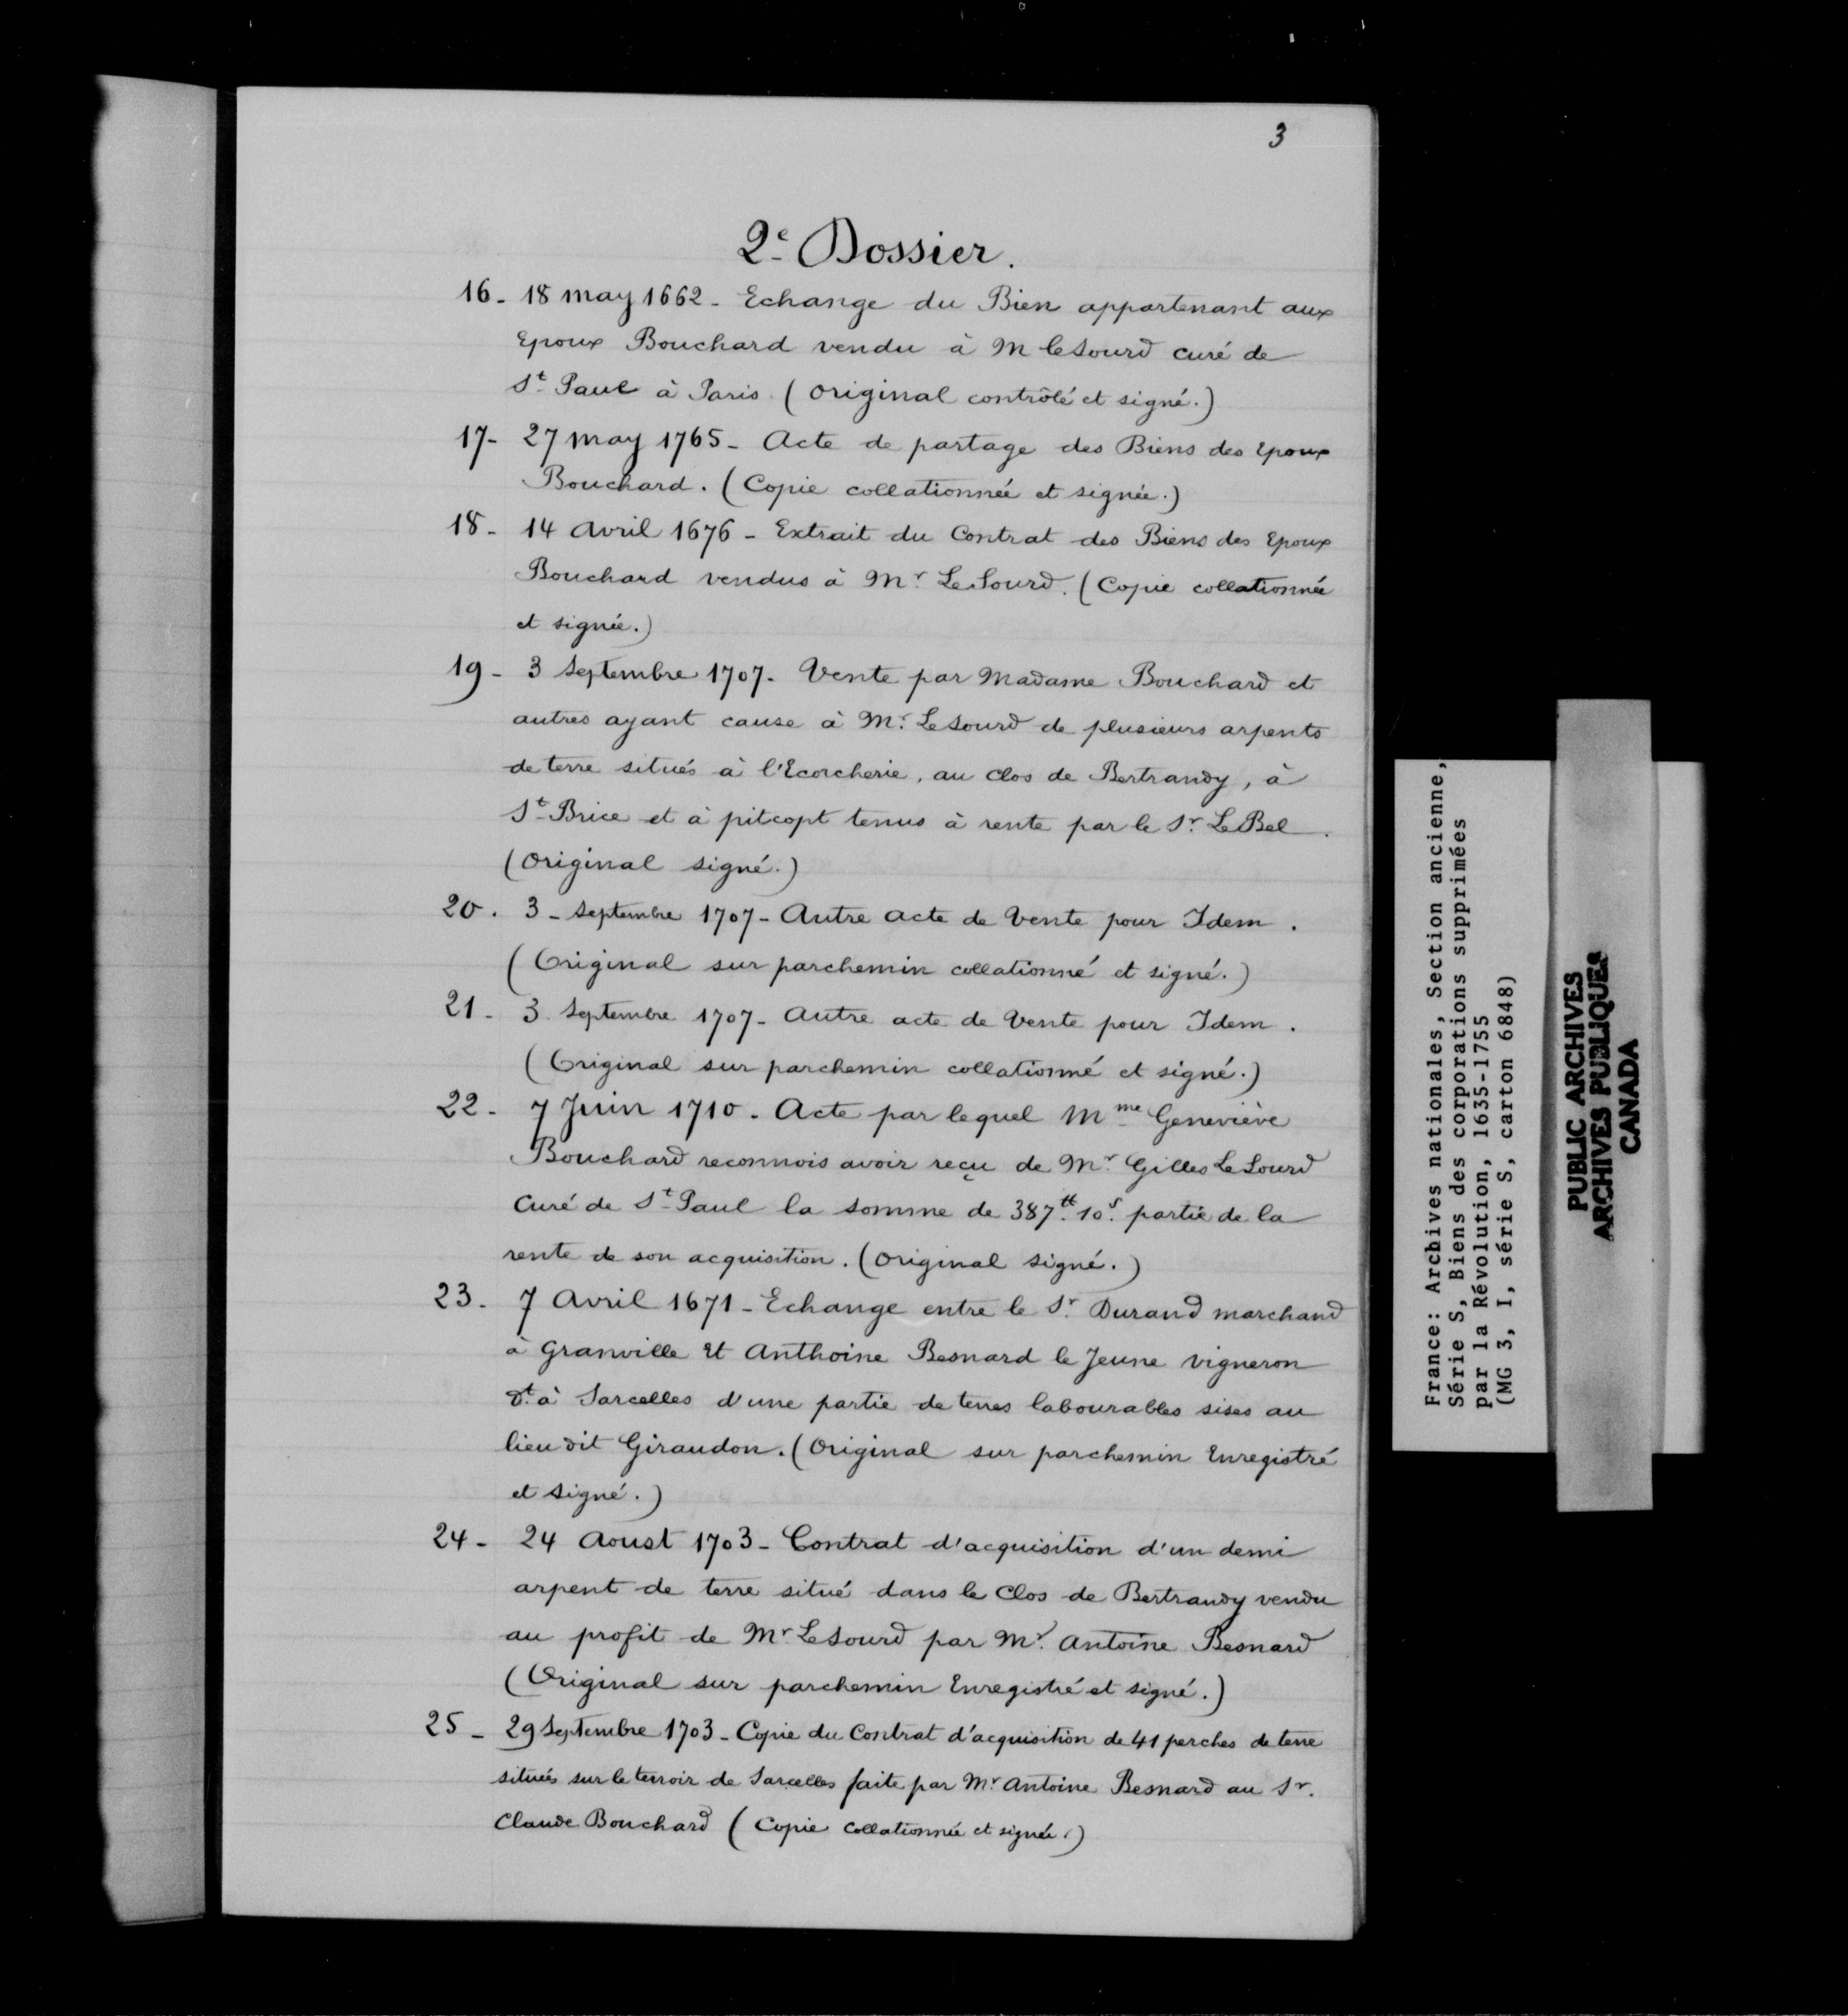 3
2e Dossier.
16 - 18 may 1662 - Echange du Bien appartenant aux
Epoux Bouchard vendu à M leSourd curé de
St Paul à Paris. (original contrôlé et signé.)
17 - 27 may 1765 - Acte de partage des Biens des Epoux
Bouchard. (Copie collationnée et signée.)
18 - 14 avril 1676 - Extrait du Contrat des Biens des Epoux
Bouchard vendus à Mr. LeSourd. (Copie collationnée
et signée.)
19 - 3 Septembre 1707 - Vente par Madame Bouchard et
autres ayant cause à Mr. LeSourd de plusieurs arpents
de terre situés à l'Ecorcherie, au clos de Bertrandy, à
St Brice et à pitcopt tenus à rente par le Sr. LeBel.
(Original signé.)
20. 3 - Septembre 1707 - Autre acte de Vente pour Idem.
(Original sur parchemin collationné et signé.)
21 - 3 Septembre 1707 - Autre acte de Vente pour Idem.
(Original sur parchemin collationné et signé.)
22 - 7 Juin 1710 - Acte par lequel Mme Geneviève
Bouchard reconnois avoir reçu de Mr. Gilles LeSourd
Curé de St Paul la somme de 387tt. 10s. partie de la
rente de son acquisition. (Original signé.)
23 - 7 Avril 1671 - Echange entre le Sr. Durand marchand
à Granville Et Anthoine Besnard le Jeune vigneron
dt. à Sarcelles d'une partie de terres labourables sises au
lieu dit Giraudon. (Original sur parchemin Enregistré
et signé.)
24 - 24 Aoust 1703 - Contrat d'acquisition d'un demi
arpent de terre situé dans le Clos de Bertrandy vendu
au profit de Mr LeSourd par Mr. Antoine Besnard
(Original sur parchemin Enregistré et signé.)
25 - 29 Septembre 1703 - Copie du Contrat d'acquisition de 41 perches de terre
situées sur le terroir de Sarcelles faite par Mr. Antoine Besnard au Sr.
Claude Bouchard (Copie collationnée et signée.)
France: Archives nationales, Section ancienne,
Série S, Biens des corporations supprimées
par la Révolution, 1635-1755
(MG 3, I, série S, carton 6848)
PUBLIC ARCHIVES
ARCHIVES PUBLIQUES
CANADA